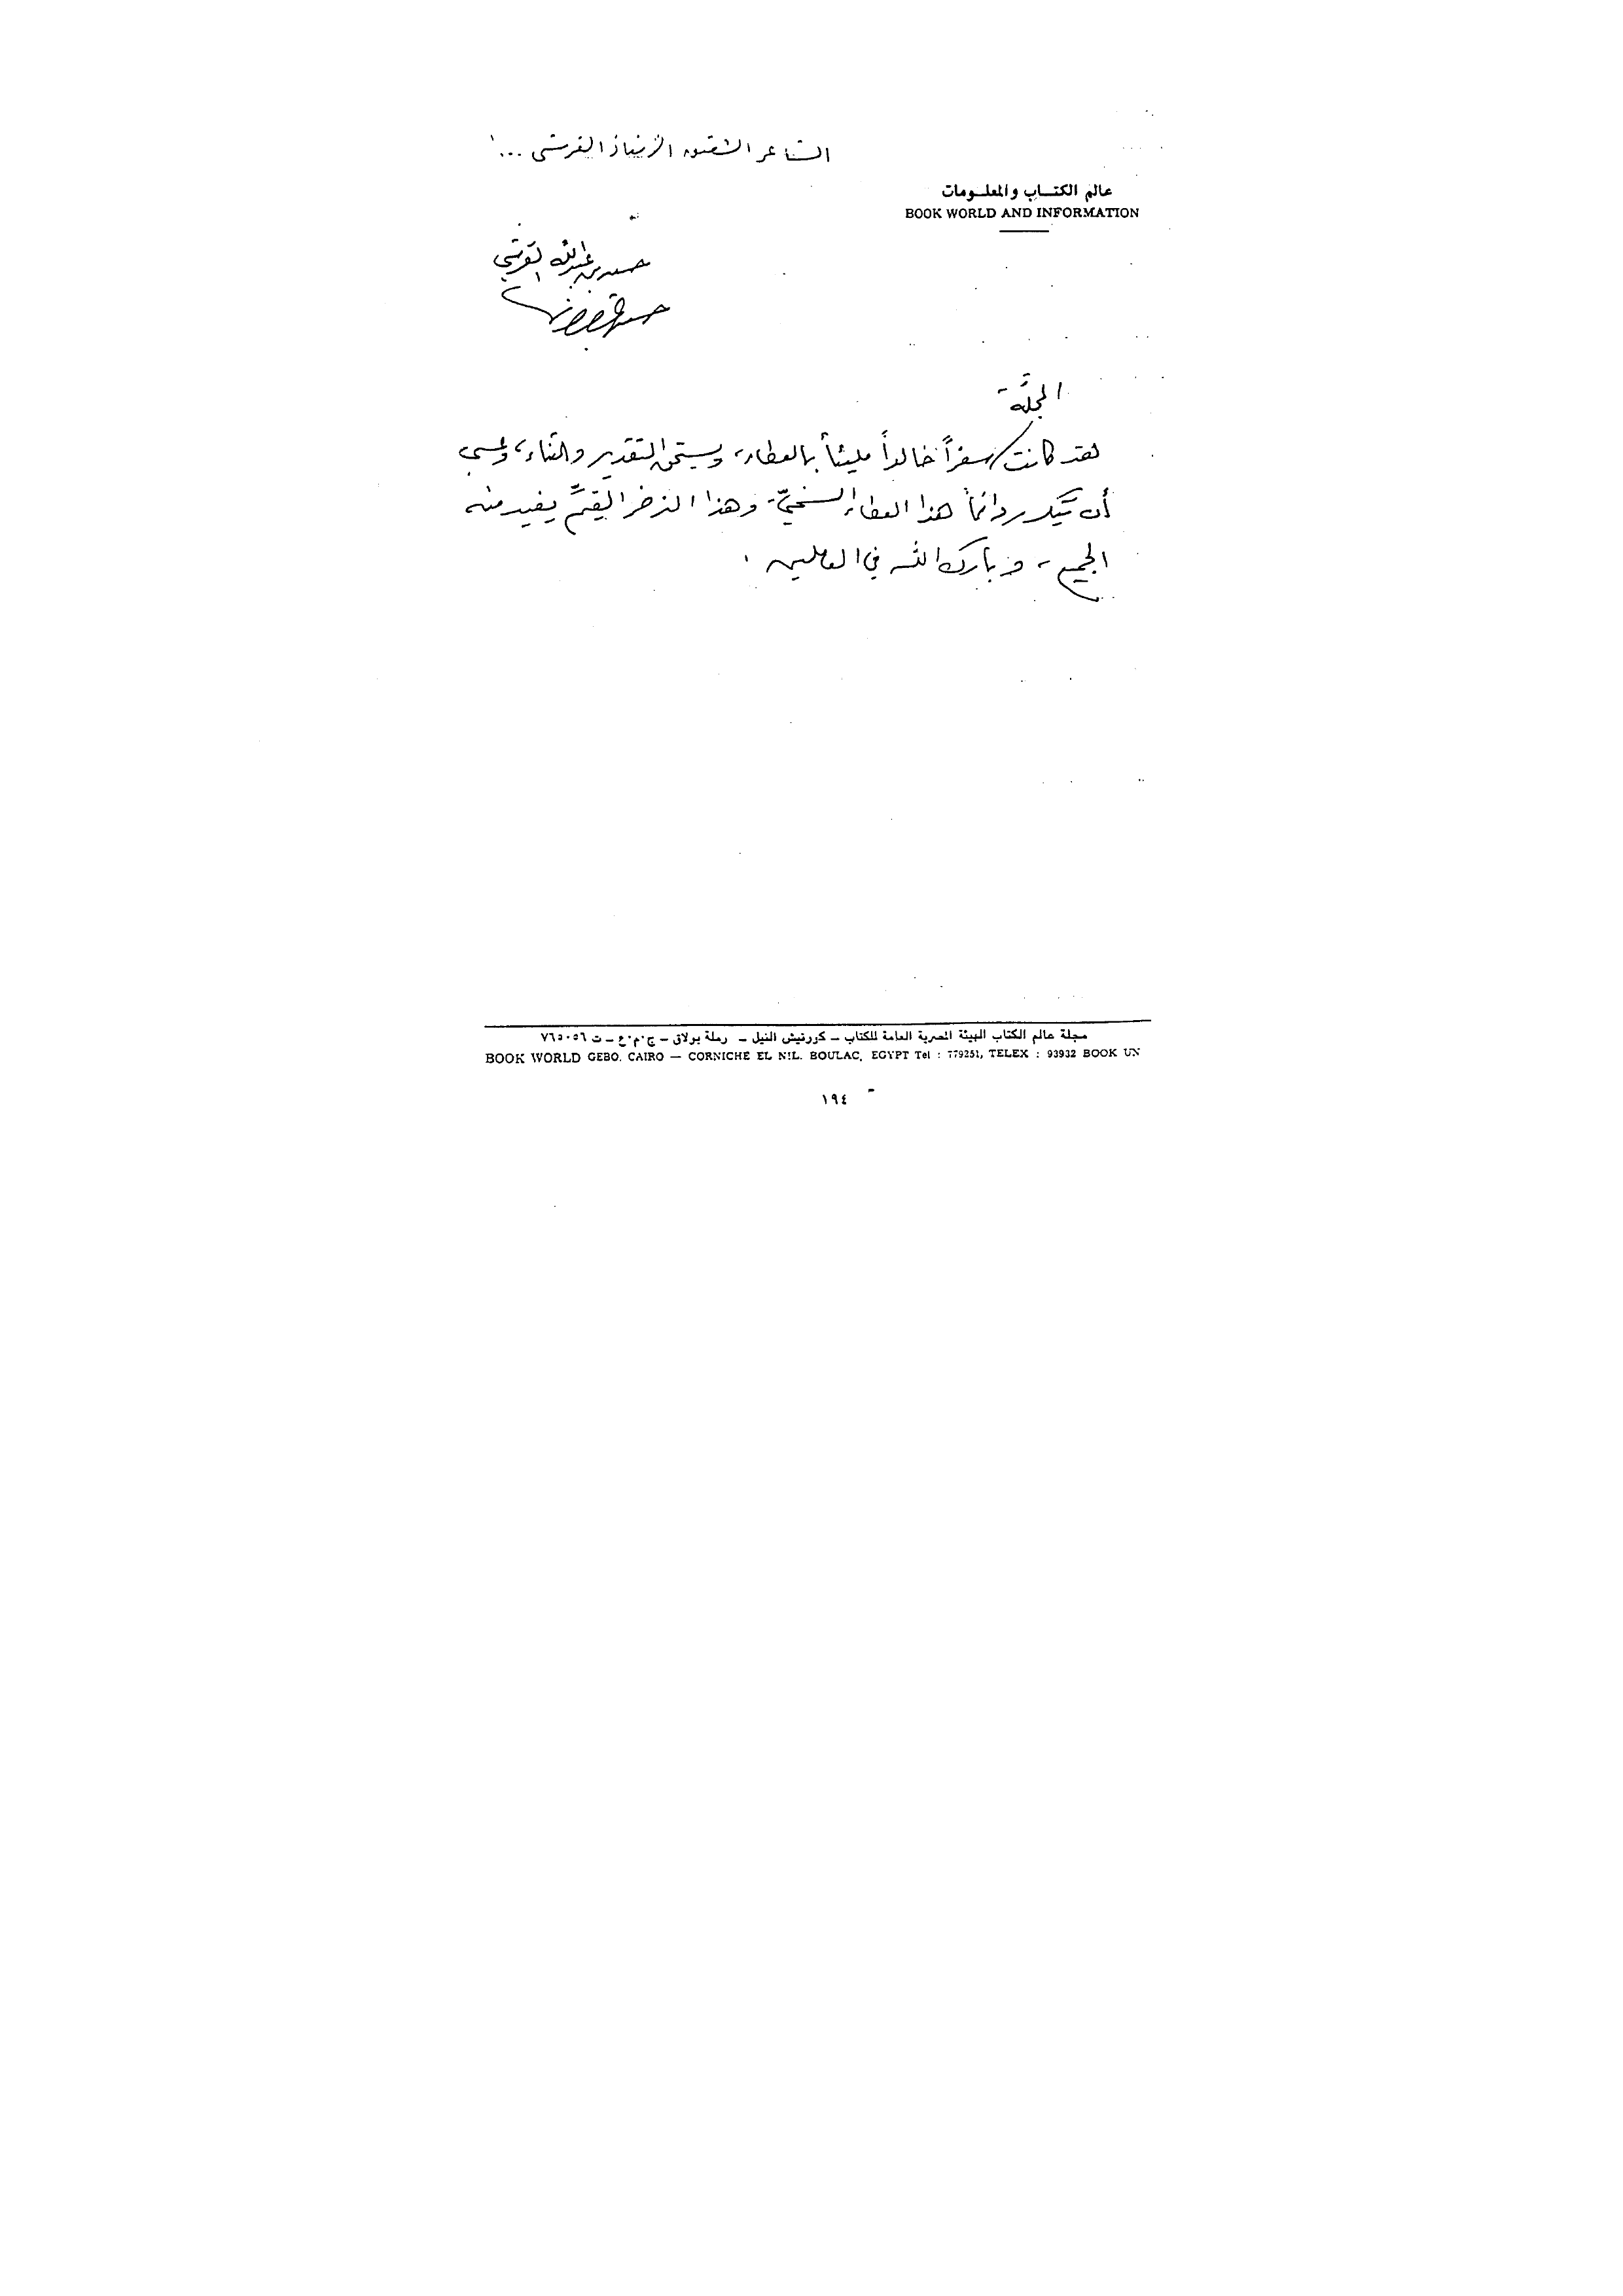 الشاعر الشقيق الأستاذ القرشى ...
عالم الكتـــاب والمعلــومات
BOOK WORLD AND INFORMATION
حسن بن عبدالله القرشي
المجلَّة
لقد كانت سفراً خالداً مليئاً بالعطاء، ويستحق التقدير والثناء، وعسى
أن يتكرر دائماً هذا العطاء السخيّ وهذا الذخر القيّم يفيد منه
الجميع، وبارك الله في العاملين.
مجلة عالم الكتاب الهيئة المصرية العامة للكتاب – كورنيش النيل – رملة بولاق – ج.م.ع – ت ٧٦٥٠٥٦
BOOK WORLD GEBO. CAIRO — CORNICHE EL NIL. BOULAC, EGYPT Tel : 779251, TELEX : 93932 BOOK UN
١٩٤